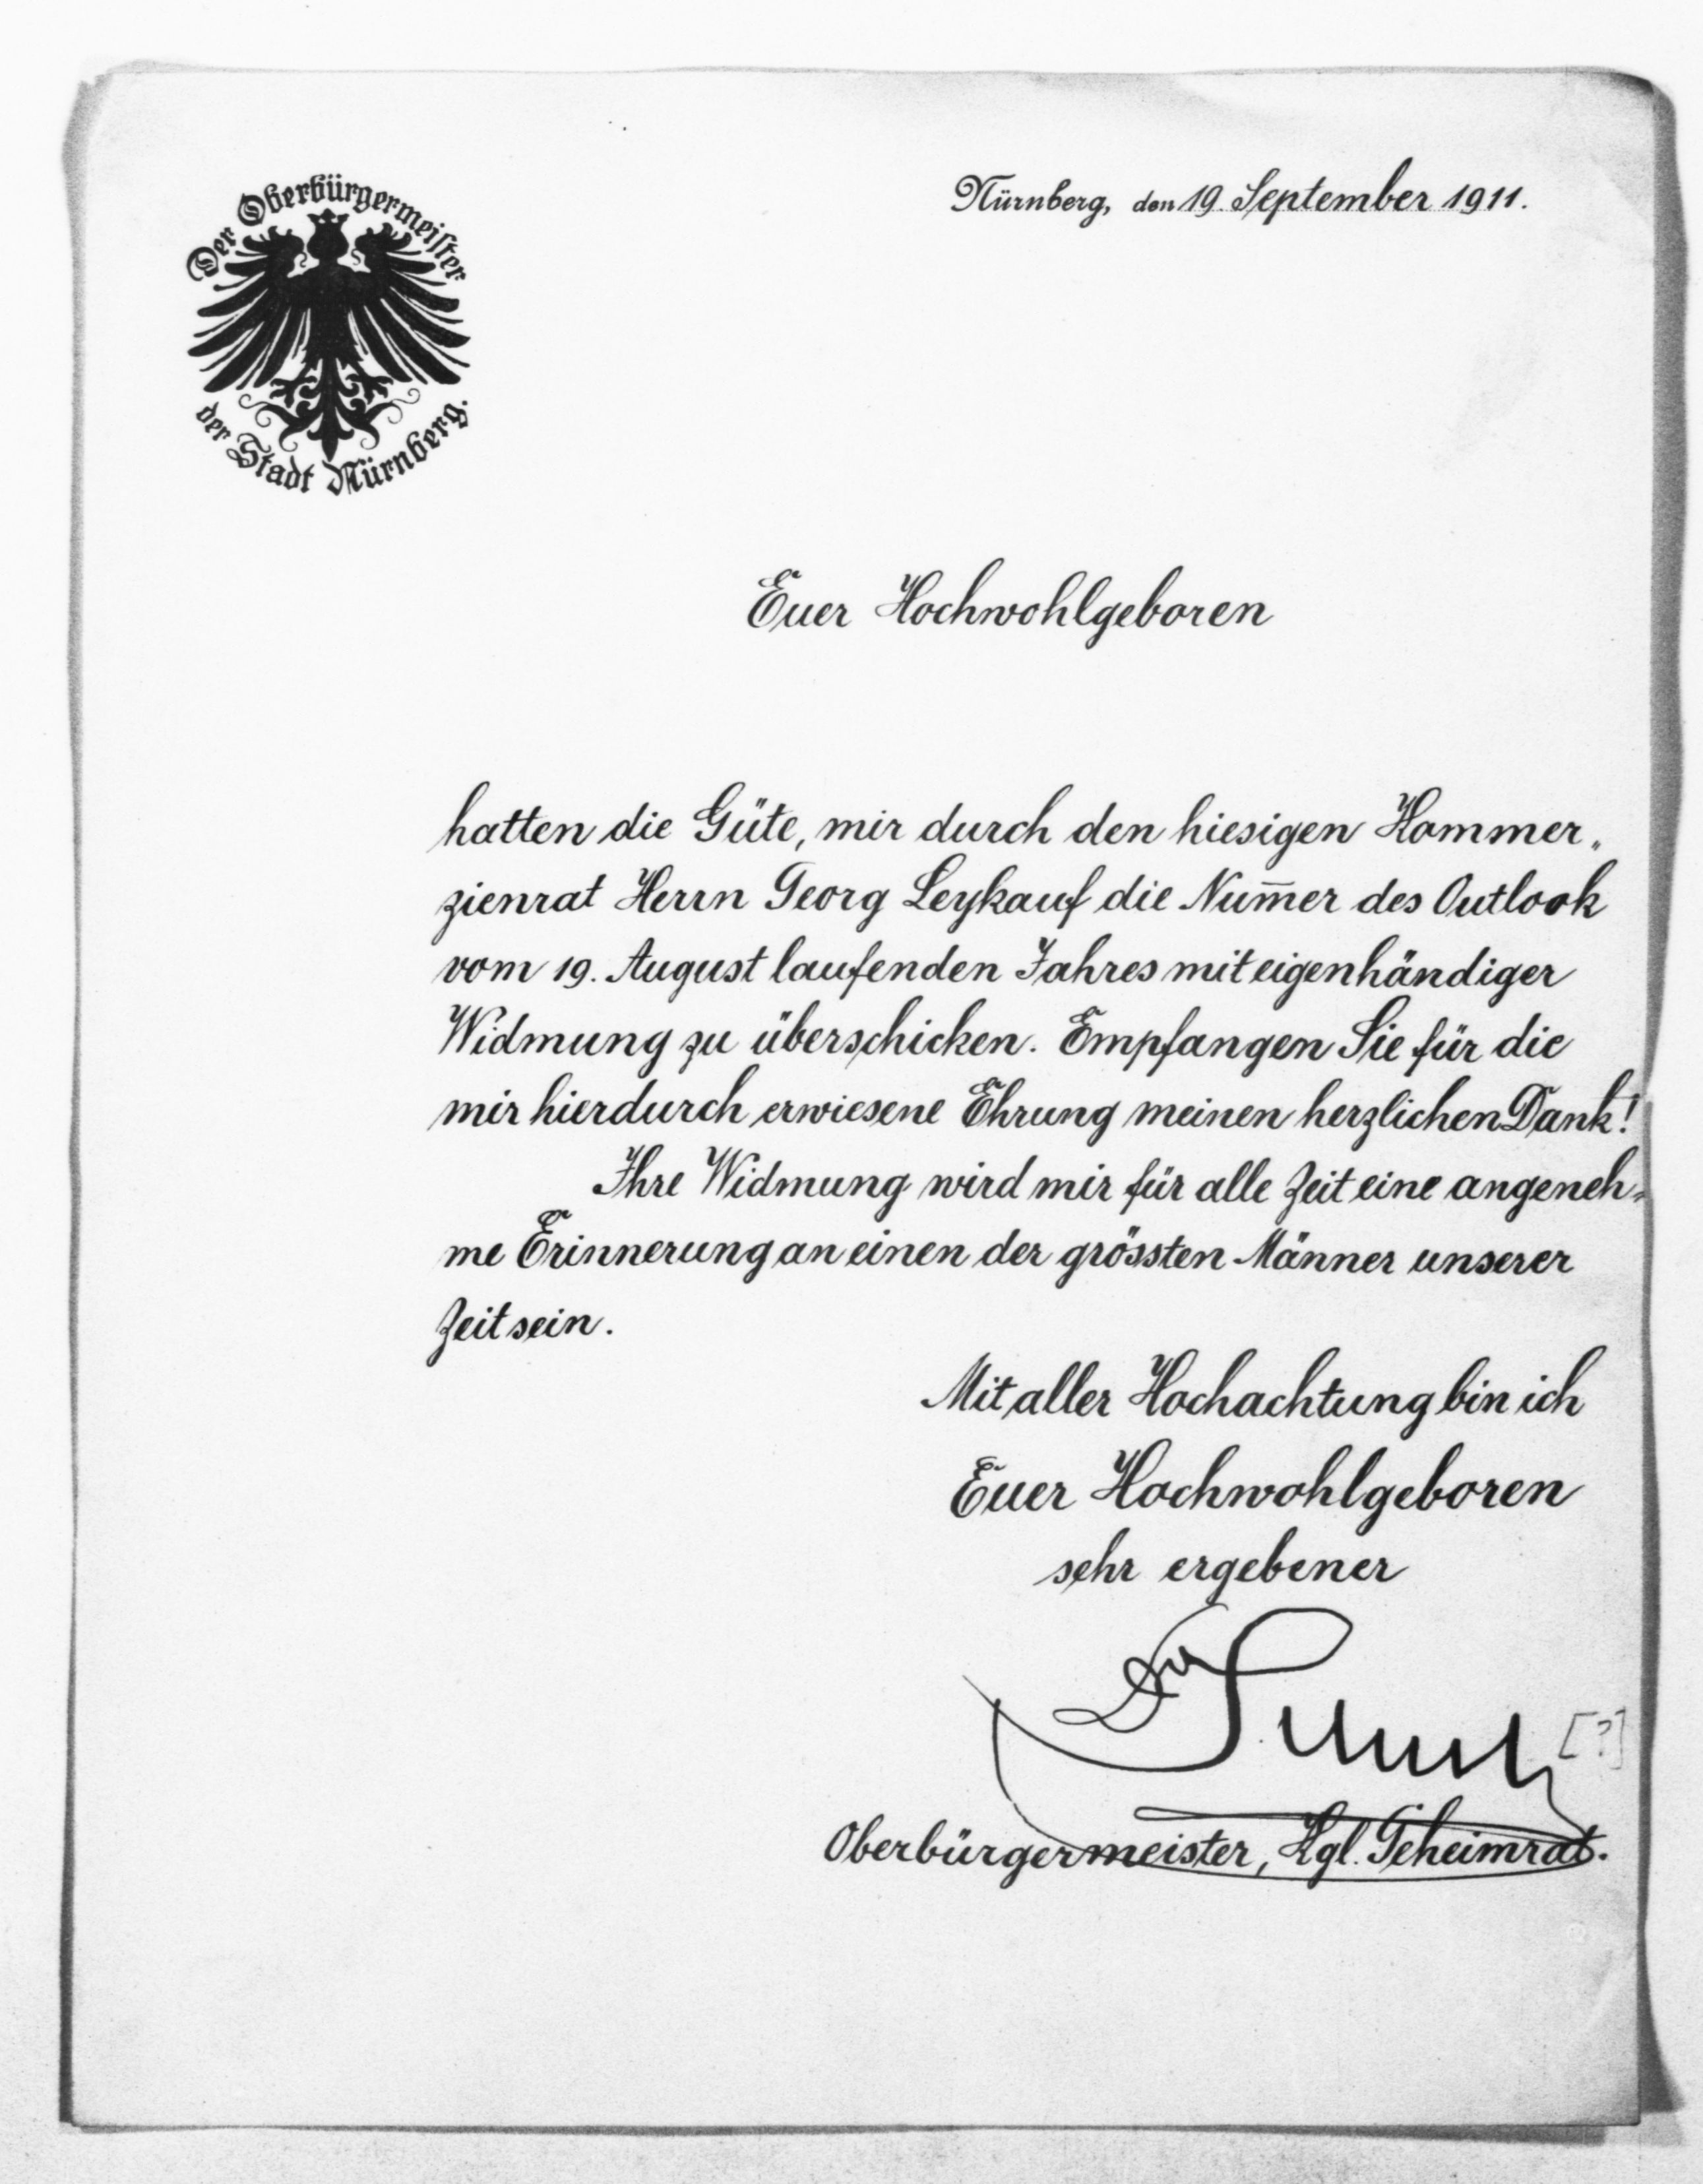 Der Oberbürgermeister
der Stadt Nürnberg.
Nürnberg, den 19. September 1911.
Euer Hochwohlgeboren
hatten die Güte, mir durch den hiesigen Kommer„
zienrat Herrn Georg Leykauf die Num̅er des Outlook
vom 19. August laufenden Jahres mit eigenhändiger
Widmung zu überschicken. Empfangen Sie für die
mir hierdurch erwiesene Ehrung meinen herzlichen Dank!
Ihre Widmung wird mir für alle Zeit eine angeneh„
me Erinnerung an einen der grössten Männer unserer
Zeit sein.
Mit aller Hochachtung bin ich
Euer Hochwohlgeboren
sehr ergebener
Dr
[?]
Oberbürgermeister, Kgl. Geheimrat.